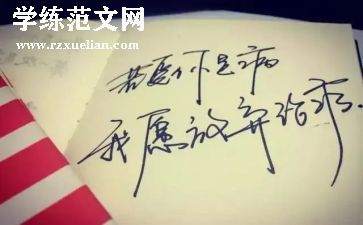 学练范文网
www.rzxuelian.com
若爱你是病
我愿放弃治疗